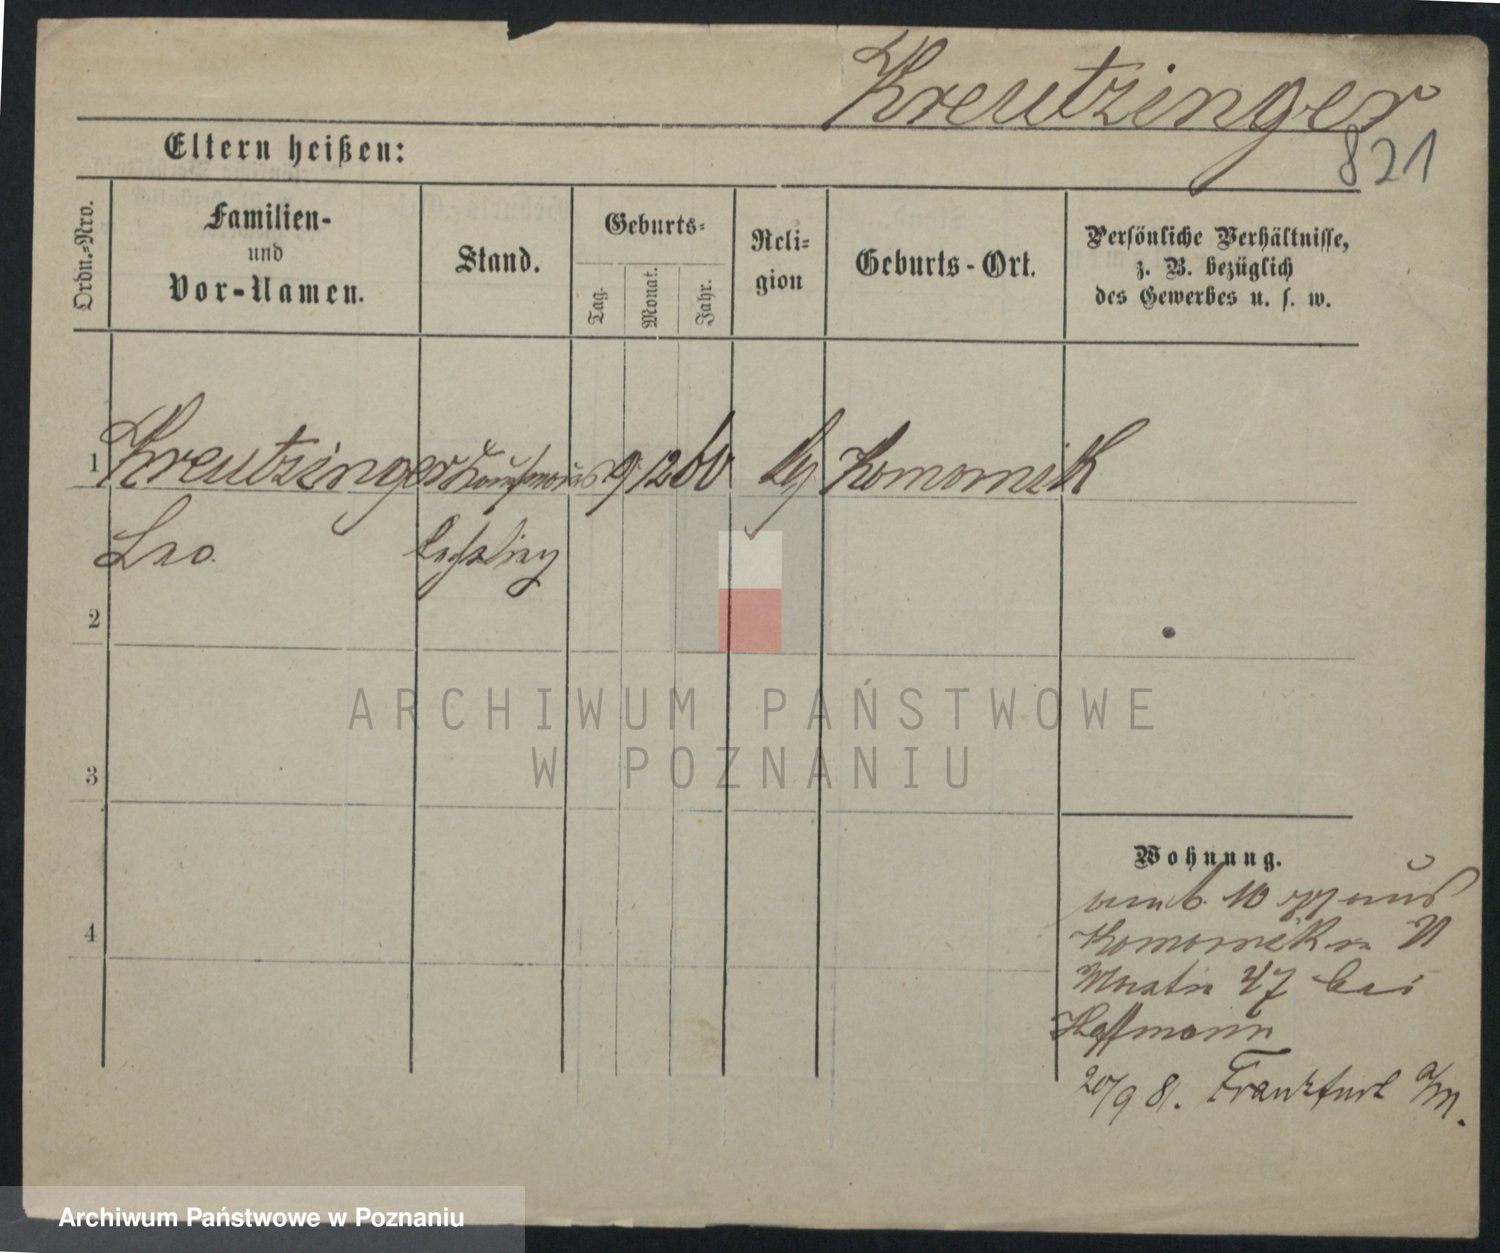 Kreutzinger
821
Eltern heißen:
Ordn.-Nro.
Familien-
und
Vor-Namen.
Stand.
Geburts-
Tag.
Monat.
Jahr.
Reli-
gion
Geburts-Ort.
Persönliche Verhältnisse,
z. B. bezüglich
des Gewerbes u. s. w.
1 Kreutzinger Kaufmanns 9 12 60 Komornik
Leo.
2
3
4
ARCHIWUM PAŃSTWOWE
W POZNANIU
Wohnung.
10 aus
Komornik W
47 bei
Hoffmann
20/9 81. Frankfurt a/M.
Archiwum Państwowe w Poznaniu